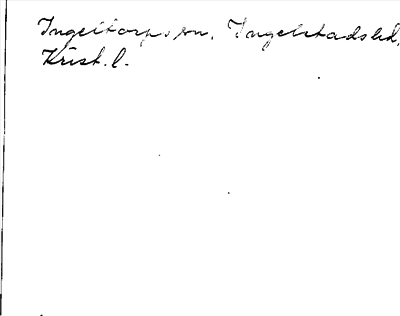 Ingeltorps sn. Ingelstads hd,
Krist. l.